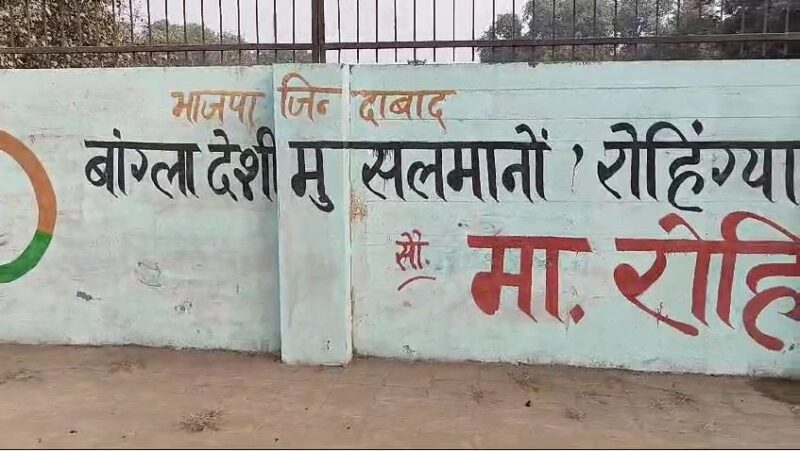 भाजपा जिन्दाबाद
बांग्लादेशी मुसलमानों, रोहिंग्या
सौ. मा. रोहि